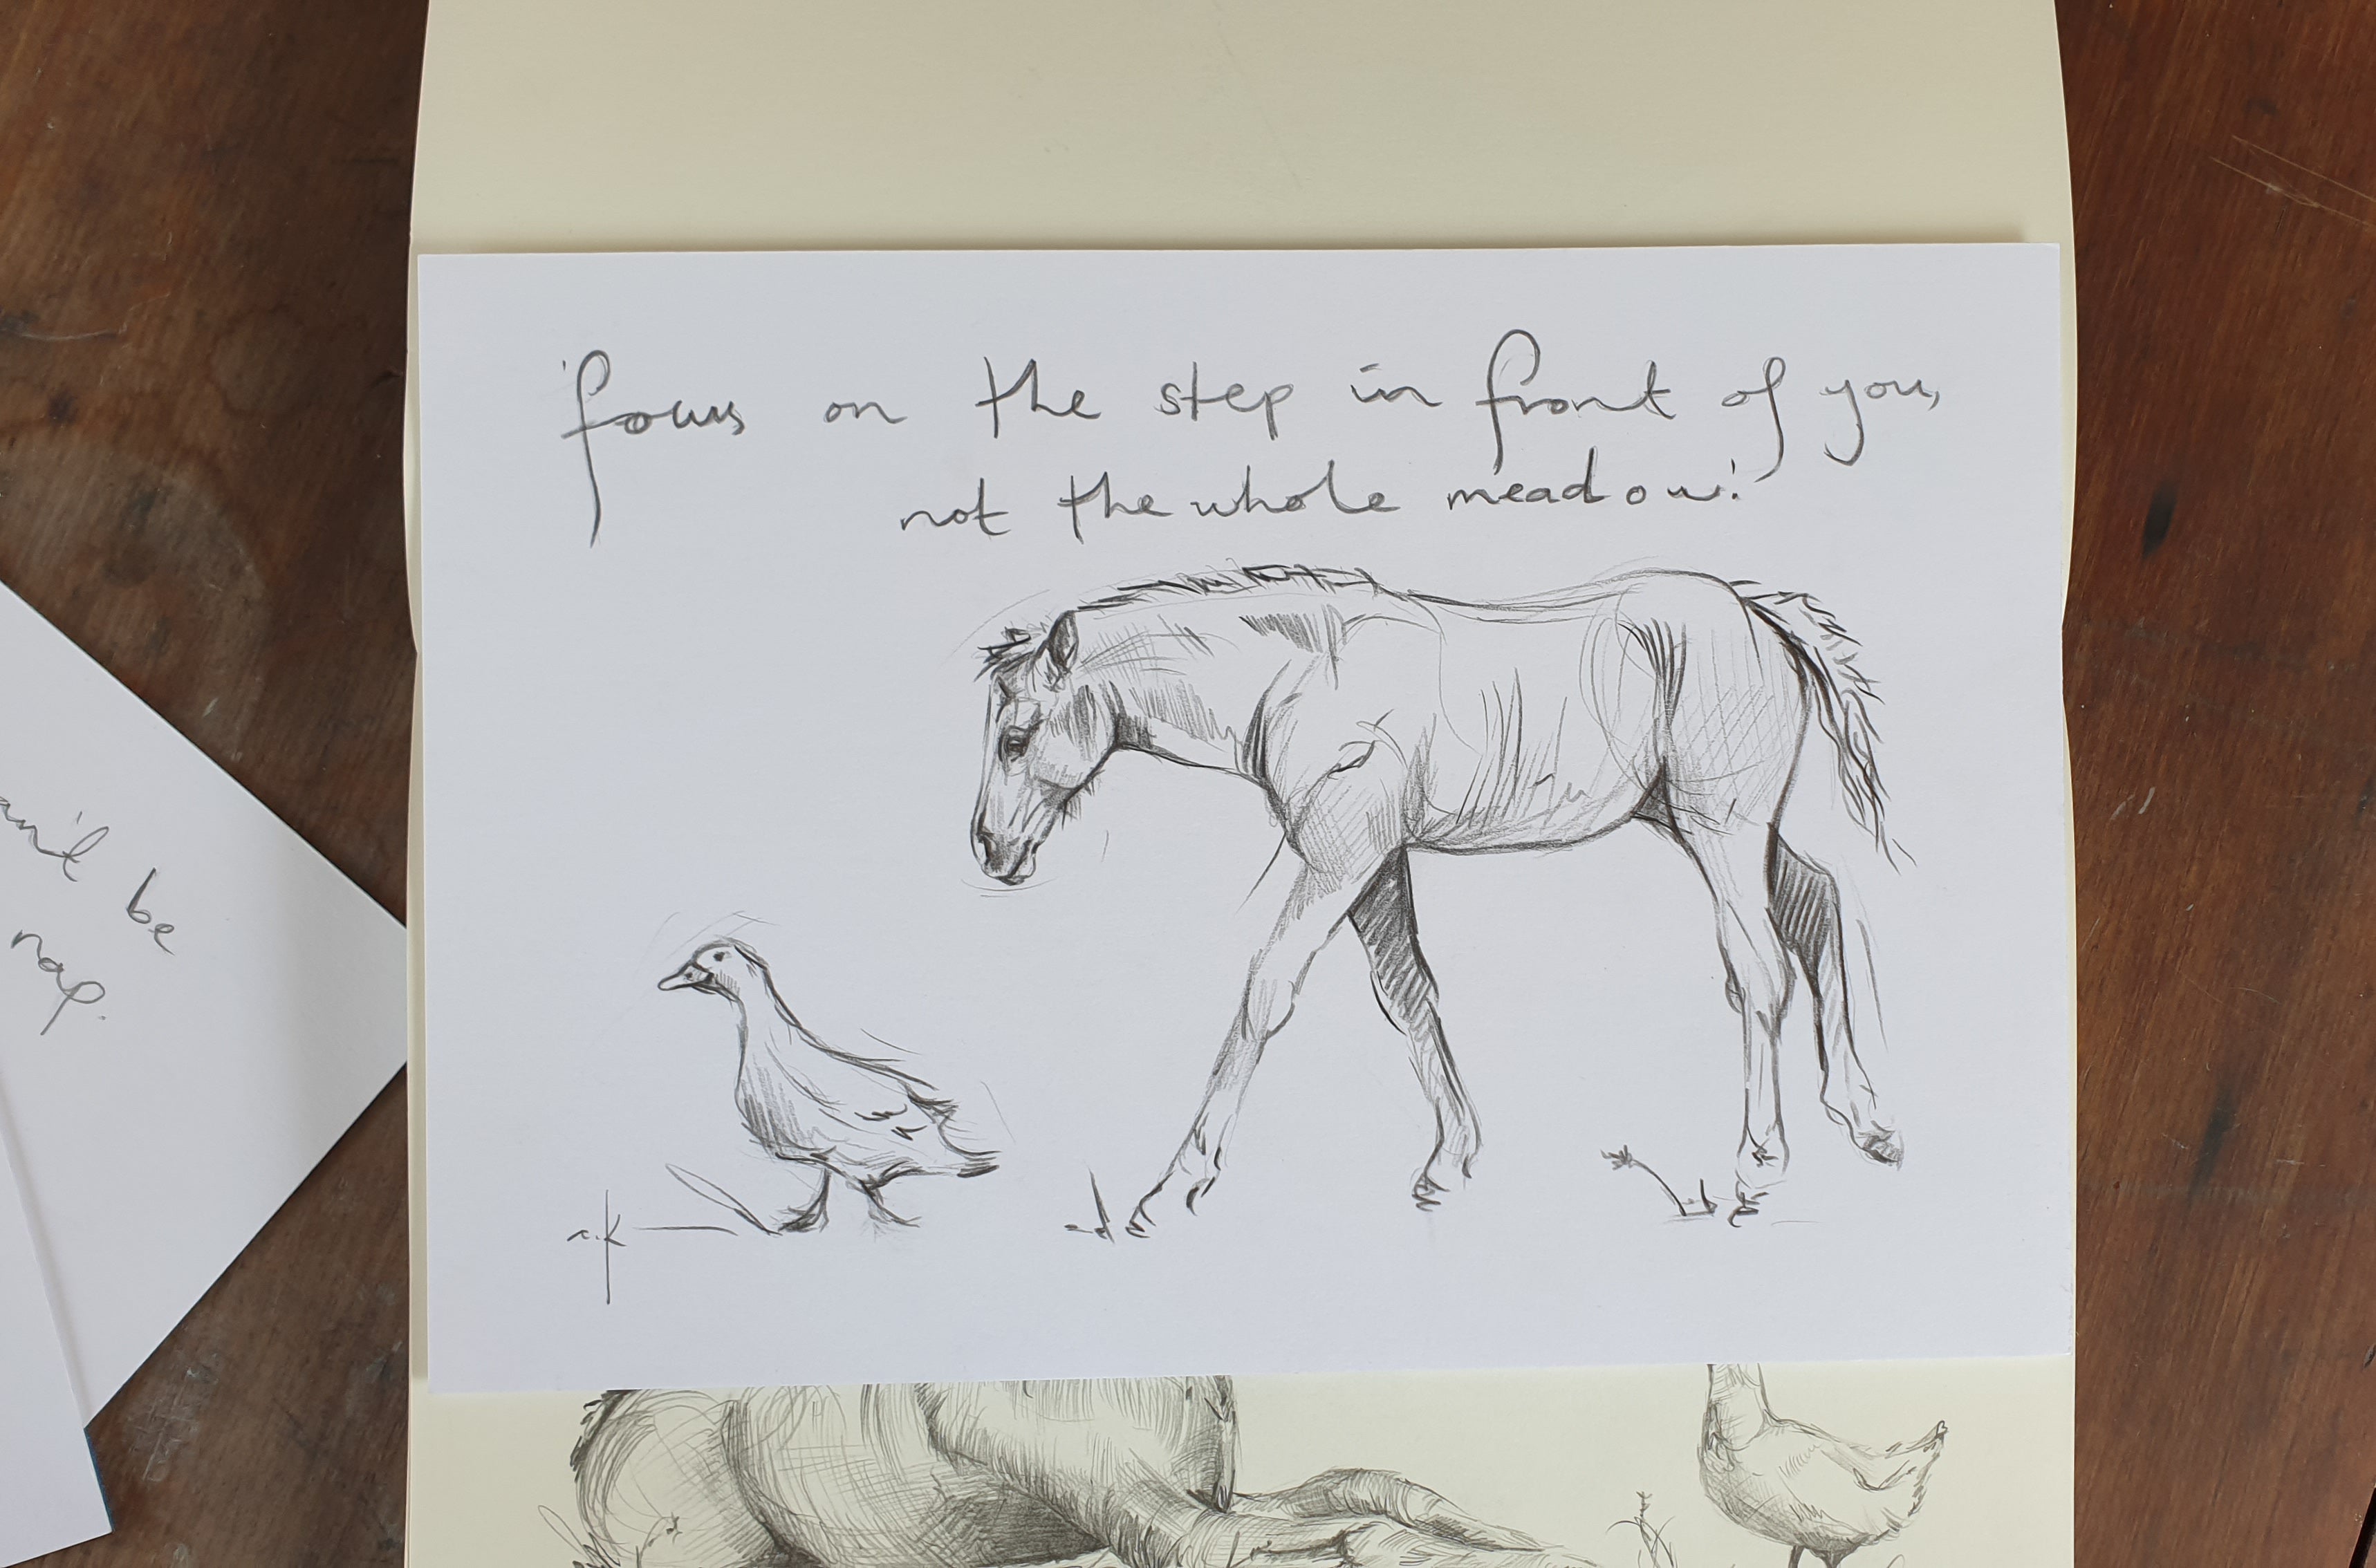 'focus on the step in front of you,
not the whole meadow.'
be
nap.